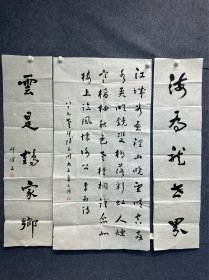 海為龍世界
江城如畫裡山晚望晴空兩
水夾明鏡雙橋落彩虹人煙
寒橘柚秋色老梧桐誰念北
樓上臨風懷謝公 李白詩
雲是鶴家鄉